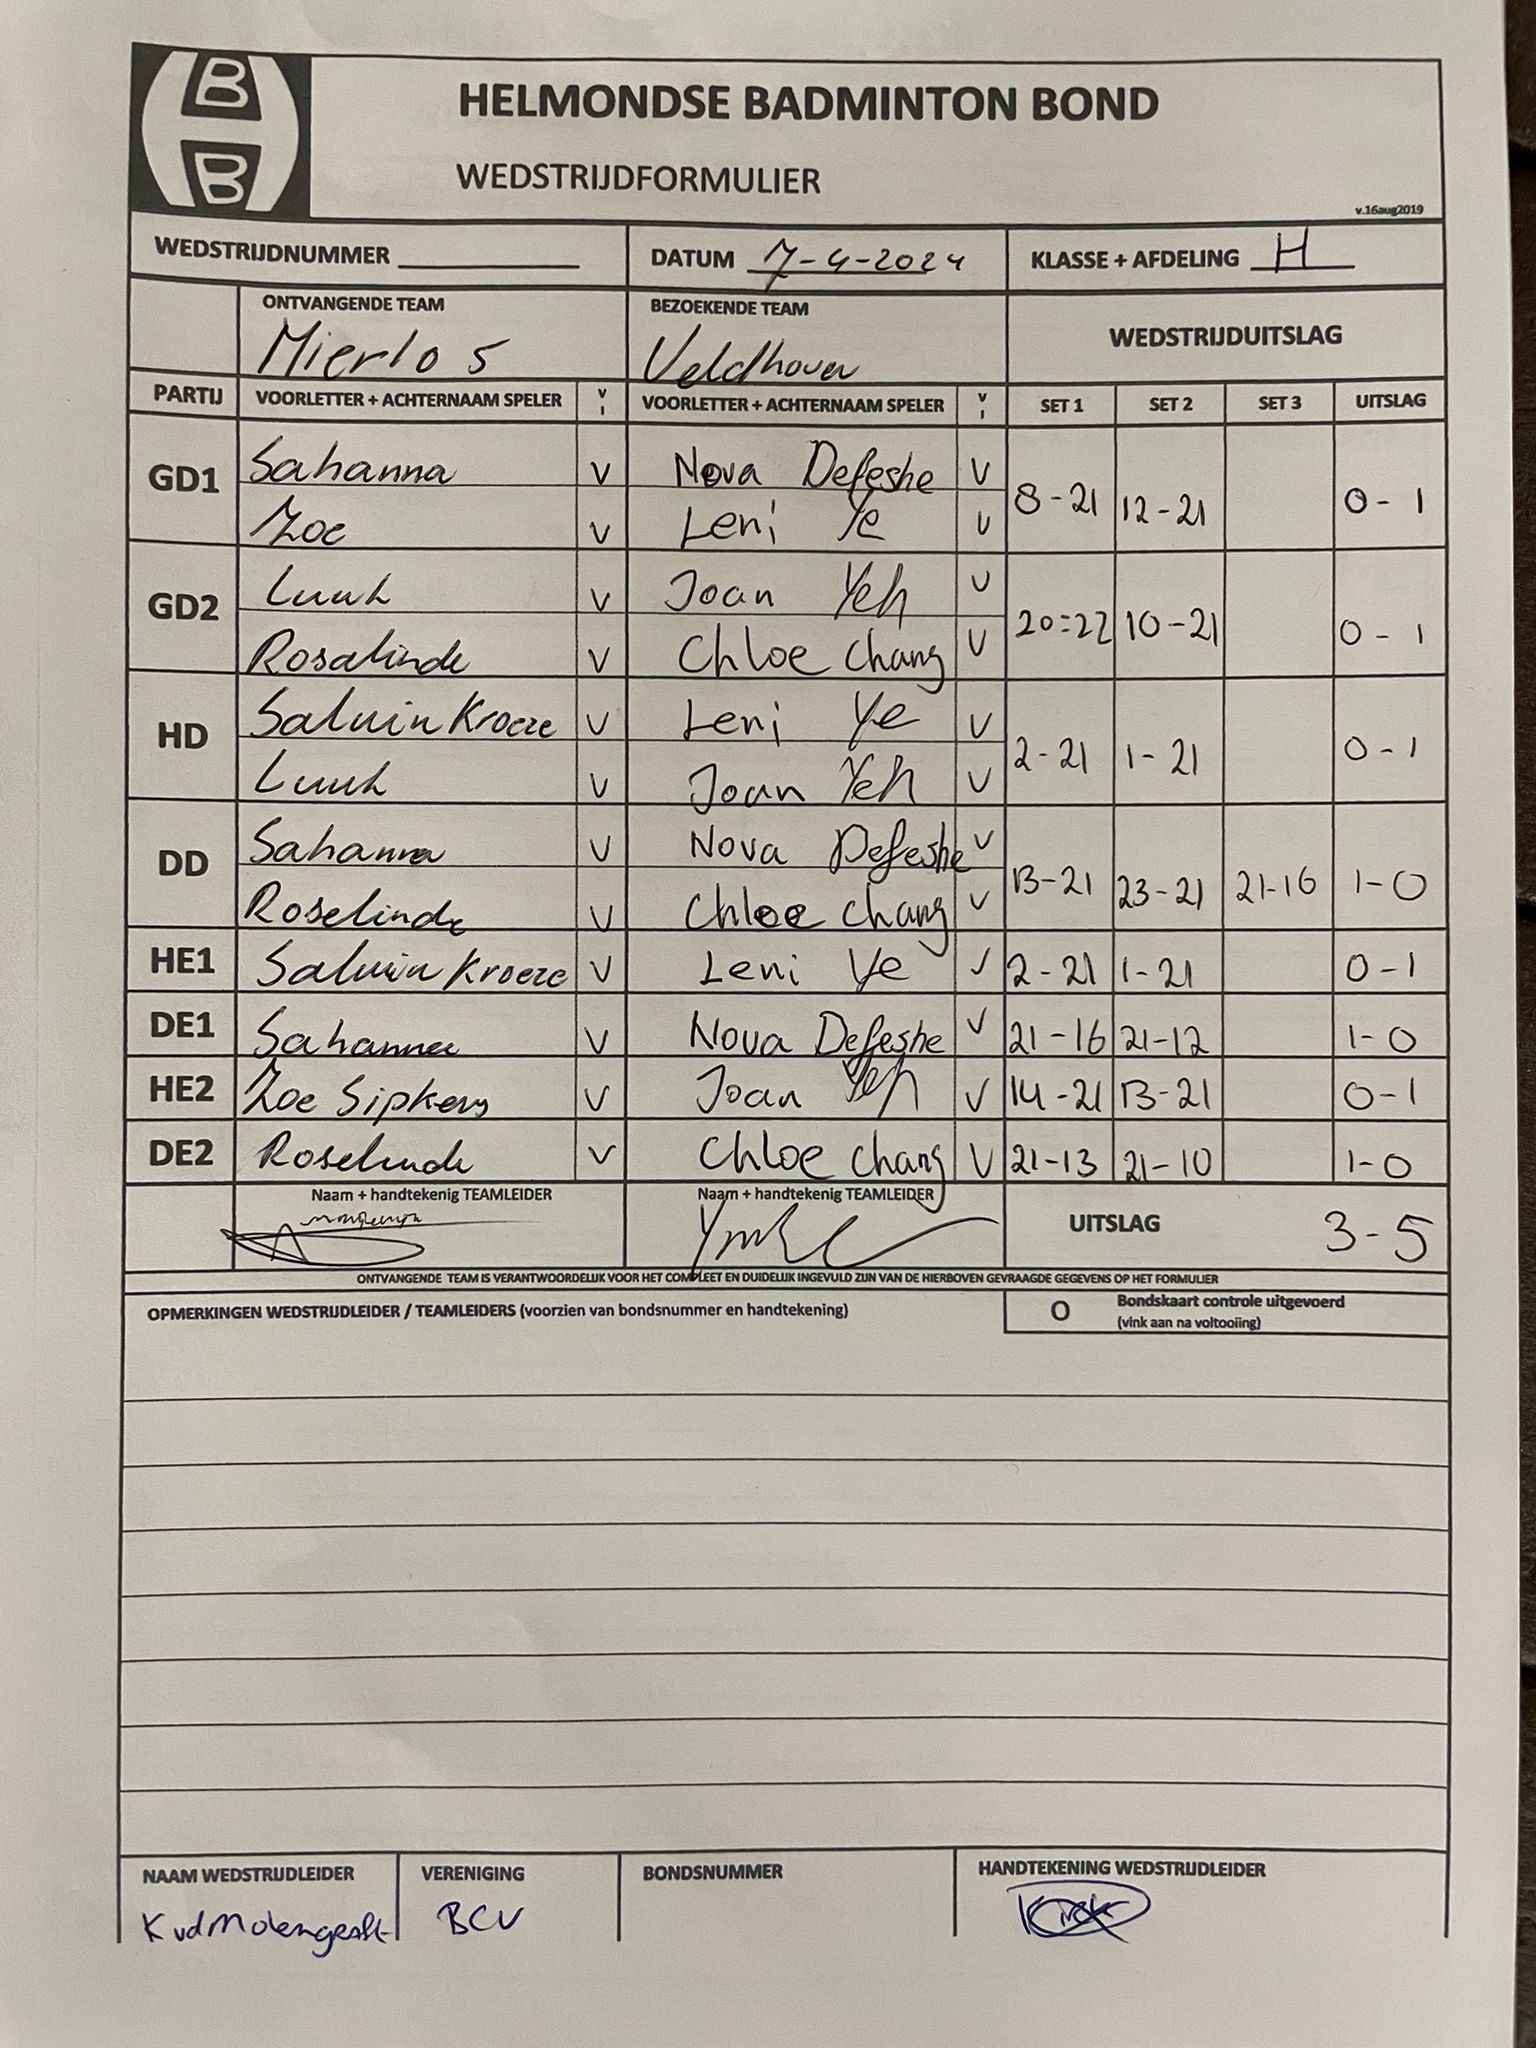 B
B
HELMONDSE BADMINTON BOND
WEDSTRIJDFORMULIER
v.16aug2019
WEDSTRIJDNUMMER DATUM 7-4-2024 KLASSE + AFDELING H
ONTVANGENDE TEAM BEZOEKENDE TEAM WEDSTRIJDUITSLAG
Mierlo 5 Veldhoven
PARTIJ VOORLETTER + ACHTERNAAM SPELER V I VOORLETTER + ACHTERNAAM SPELER V I SET 1 SET 2 SET 3 UITSLAG
GD1 Sahanna V Nova Defeshe V 8-21 12-21 0-1
Zoe V Leni Ye V
GD2 Luuk V Joan Yeh V 20-22 10-21 0-1
Rosalinde V Chloe Chang V
HD Saluin Kroeze V Leni Ye V 2-21 1-21 0-1
Luuk V Joan Yeh V
DD Sahanna V Nova Defeshe V 13-21 23-21 21-16 1-0
Roselinde V Chloe Chang V
HE1 Saluin Kroeze V Leni Ye V 2-21 1-21 0-1
DE1 Sahanna V Nova Defeshe V 21-16 21-12 1-0
HE2 Zoe Sipkens V Joan Yeh V 14-21 13-21 0-1
DE2 Roselinde V Chloe Chang V 21-13 21-10 1-0
Naam + handtekenig TEAMLEIDER Naam + handtekenig TEAMLEIDER UITSLAG 3-5
ONTVANGENDE TEAM IS VERANTWOORDELIJK VOOR HET COMPLEET EN DUIDELIJK INGEVULD ZIJN VAN DE HIERBOVEN GEVRAAGDE GEGEVENS OP HET FORMULIER
OPMERKINGEN WEDSTRIJDLEIDER / TEAMLEIDERS (voorzien van bondsnummer en handtekening) O Bondskaart controle uitgevoerd
(vink aan na voltooiing)
NAAM WEDSTRIJDLEIDER VERENIGING BONDSNUMMER HANDTEKENING WEDSTRIJDLEIDER
K vd Molengraft BCV